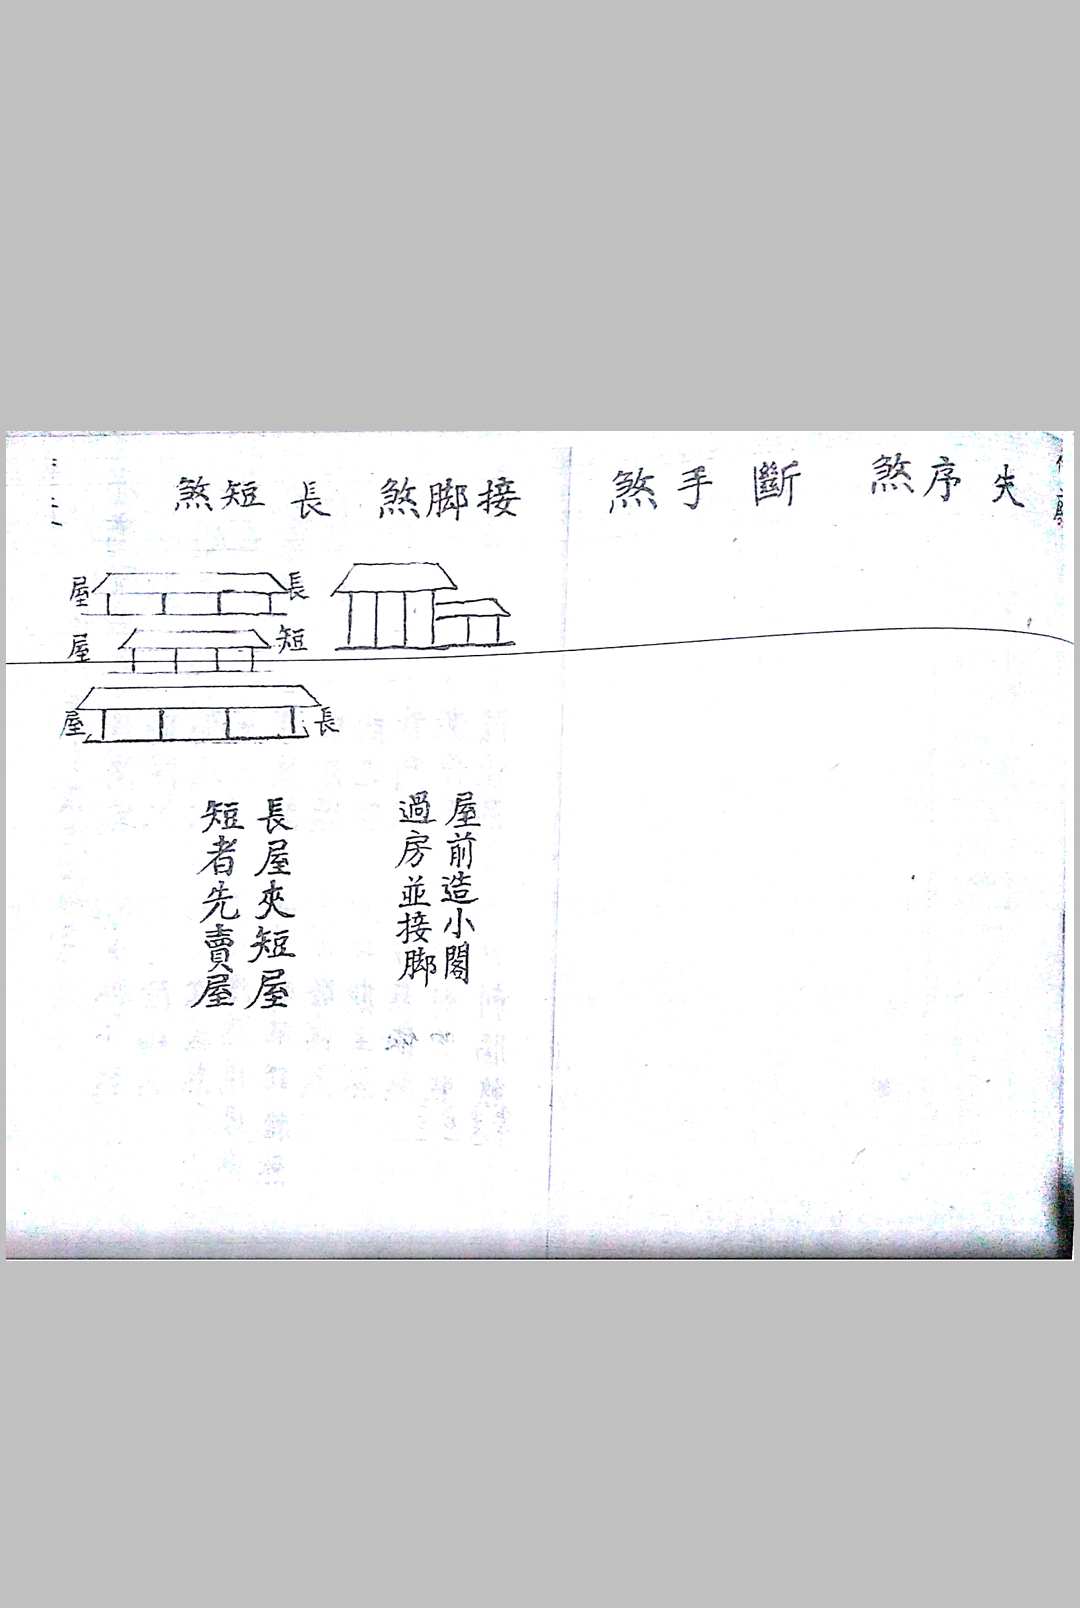 失序煞
斷手煞
接脚煞
長短煞
長屋
短屋
長屋
屋前造小閣
過房並接脚
長屋夾短屋
短者先賣屋